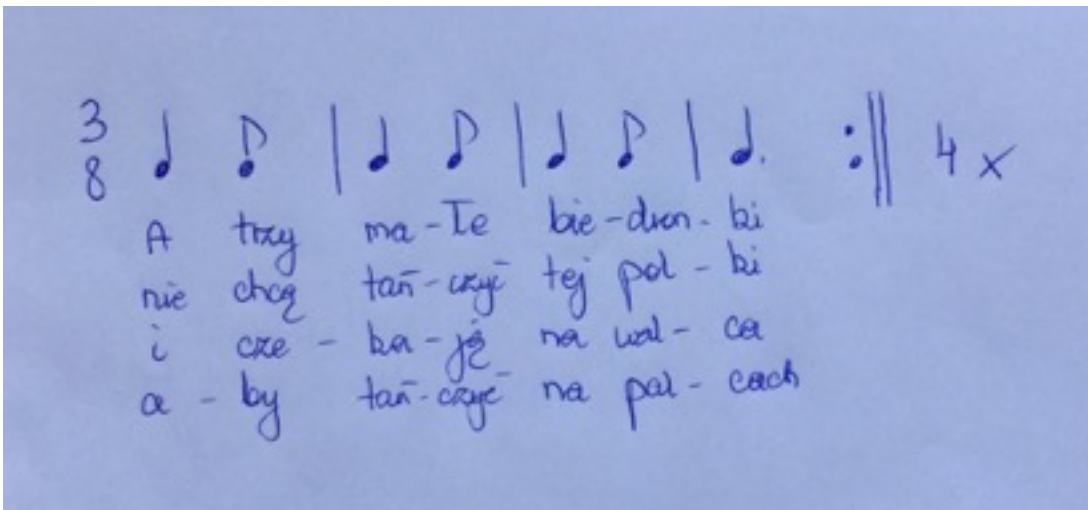 3 8 4 x
A trzy ma-łe bie-dron-ki
nie chcą tań-czyć tej pol-ki
i cze-ka-ją na wal-ca
a-by tań-czyć na pal-cach